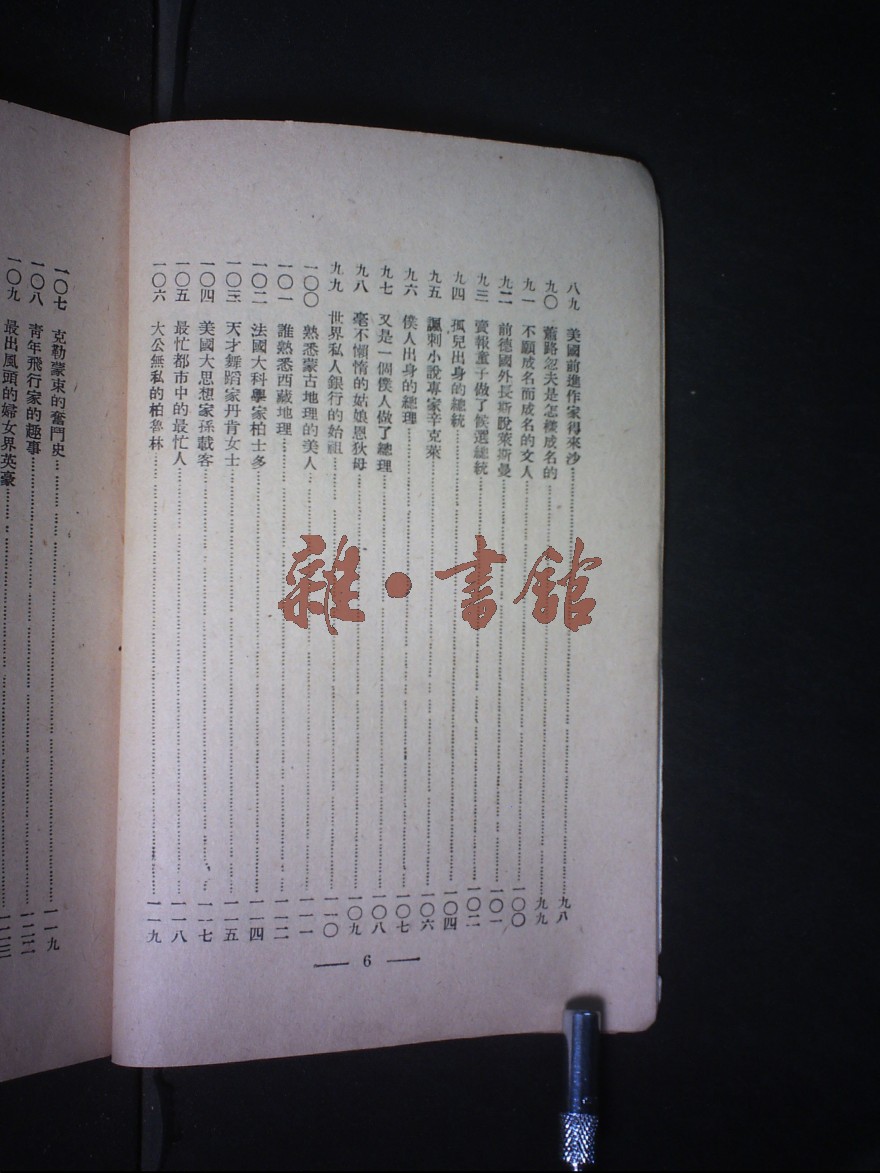 八九 美國前進作家得來沙 九八
九〇 蕭路忽夫是怎樣成名的 九九
九一 不願成名而成名的文人 一〇〇
九二 前德國外長斯脫萊斯曼 一〇一
九三 賣報童子做了候選總統 一〇二
九四 孤兒出身的總統 一〇四
九五 諷刺小說專家辛克萊 一〇六
九六 僕人出身的總理 一〇七
九七 又是一個僕人做了總理 一〇八
九八 毫不懶惰的姑娘恩狄母 一〇九
九九 世界私人銀行的始祖 一一〇
一〇〇 熟悉蒙古地理的美人 一一一
一〇一 誰熟悉西藏地理 一一二
一〇二 法國大科學家柏士多 一一四
一〇三 天才舞蹈家丹肯女士 一一五
一〇四 美國大思想家孫載客 一一七
一〇五 最忙都市中的最忙人 一一八
一〇六 大公無私的柏魯林 一一九
6
一〇七 克勒蒙東的奮鬥史 一一九
一〇八 青年飛行家的趣事 一二二
一〇九 最出風頭的婦女界英豪 一二三
雜·書館